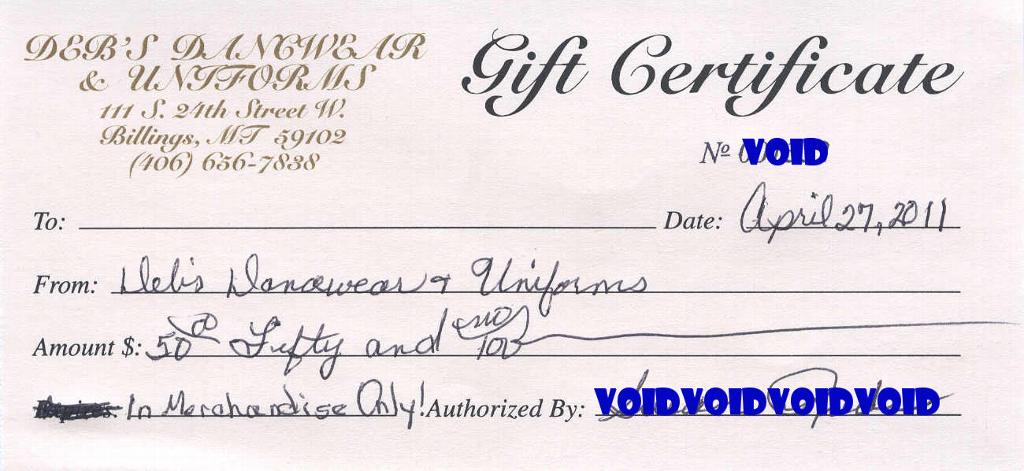 DEB'S DANCWEAR
& UNIFORMS
111 S. 24th Street W.
Billings, MT 59102
(406) 656-7838
Gift Certificate
Nº VOID
To: Date: April 27, 2011
From: Deb's Dancwear & Uniforms
Amount $: 50 00 Fifty and no/100
Expires: In Merchandise Only! Authorized By: VOID VOID VOID VOID